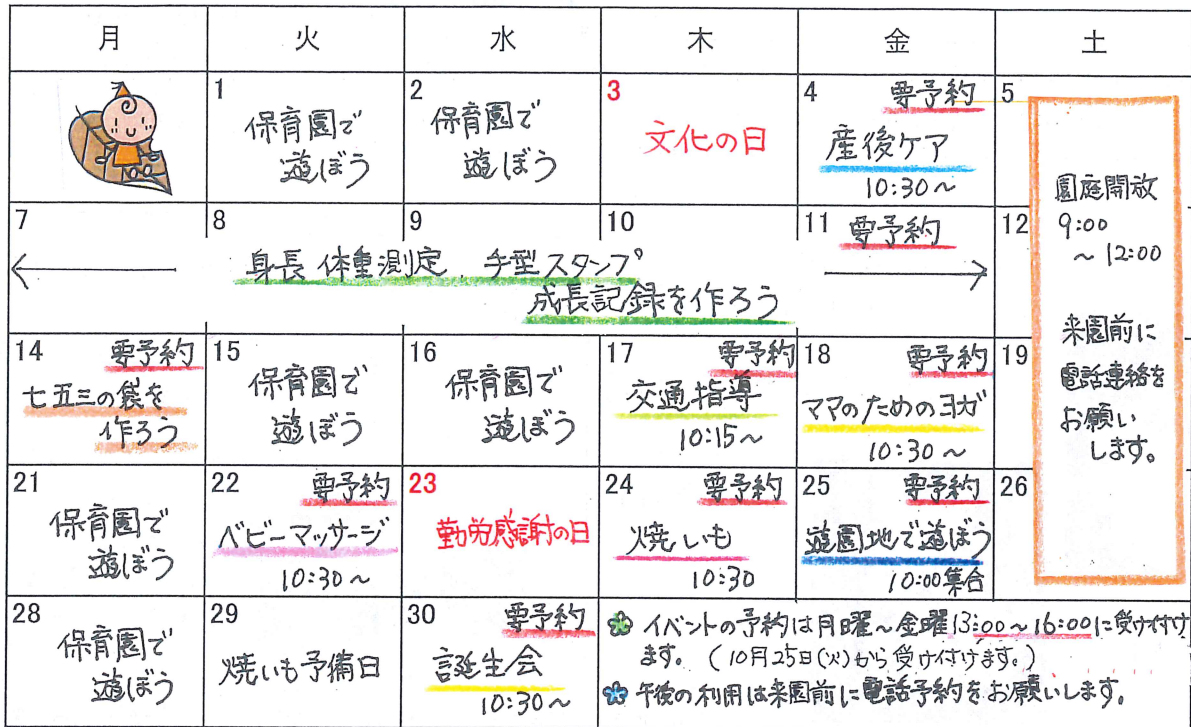 月 火 水 木 金 土
1
保育園で
遊ぼう
2
保育園で
遊ぼう
3
文化の日
4 要予約
産後ケア
10:30〜
5
園庭開放
9:00
〜12:00
来園前に
電話連絡を
お願い
します。
7
8
9
10
11 要予約
身長 体重測定、手型スタンプ
成長記録を作ろう
12
14 要予約
七五三の袋を
作ろう
15
保育園で
遊ぼう
16
保育園で
遊ぼう
17 要予約
交通指導
10:15〜
18 要予約
ママのためのヨガ
10:30〜
19
21
保育園で
遊ぼう
22 要予約
ベビーマッサージ
10:30〜
23
勤労感謝の日
24 要予約
焼いも
10:30
25 要予約
遊園地で遊ぼう
10:00集合
26
28
保育園で
遊ぼう
29
焼いも予備日
30 要予約
誕生会
10:30〜
イベントの予約は月曜〜金曜13:00〜16:00に受け付け
ます。(10月25日(火)から受け付けます。)
午後の利用は来園前に電話予約をお願いします。